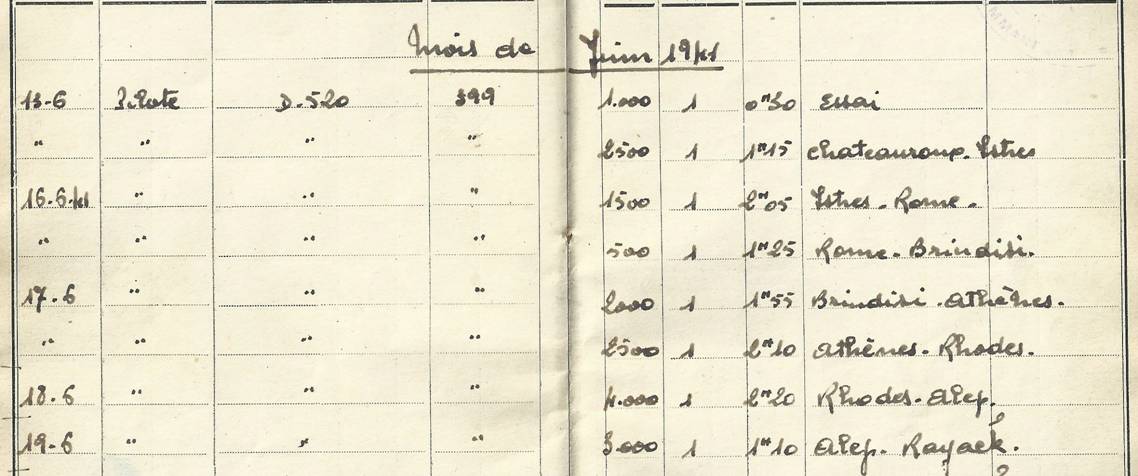 Mois de Juin 1941
13-6 Pilote D.520 399 1.000 1 0H30 Essai
" " " " 2500 1 1H15 Chateauroux. Istres
16.6.41 " " " 1500 1 2H05 Istres. Rome.
" " " " 500 1 1H25 Rome. Brindisi.
17.6 " " " 2000 1 1H55 Brindisi. Athènes.
" " " " 2500 1 2H10 Athènes. Rhodes.
18.6 " " " 4.000 1 2H20 Rhodes. Alep.
19-6 " " " 3.000 1 1H10 Alep. Rayack.